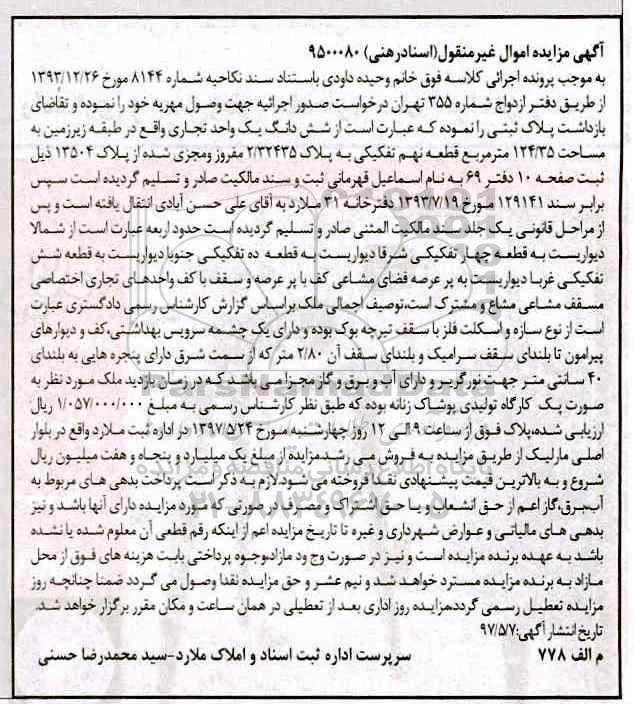 آگهی مزایده اموال غیرمنقول(اسنادرهنی) ۹۵۰۰۰۸۰
به موجب پرونده اجرائی کلاسه فوق خانم وحیده داودی باستناد سند نکاحیه شماره ۸۱۴۴ مورخ ۱۳۹۳/۱۲/۲۶
از طریق دفتر ازدواج شماره ۳۵۵ تهران درخواست صدور اجرائیه جهت وصول مهریه خود را نموده و تقاضای
بازداشت پلاک ثبتی را نموده که عبارت است از شش دانگ یک واحد تجاری واقع در طبقه زیرزمین به
مساحت ۱۲۴/۳۵ مترمربع قطعه نهم تفکیکی به پلاک ۲/۳۲۴۳۵ مفروز ومجزی شده از پلاک ۱۳۵۰۴ ذیل
ثبت صفحه ۱۰ دفتر ۶۹ به نام اسماعیل قهرمانی ثبت و سند مالکیت صادر و تسلیم گردیده است سپس
برابر سند ۱۲۹۱۴۱ مورخ ۱۳۹۳/۷/۱۹ دفترخانه ۳۱ ملارد به آقای علی حسن آبادی انتقال یافته است و پس
از مراحل قانونی یک جلد سند مالکیت المثنی صادر و تسلیم گردیده است حدود اربعه عبارت است از شمالا
دیواریست به قطعه چهار تفکیکی شرقا دیواریست به قطعه ده تفکیکی جنوبا دیواریست به قطعه شش
تفکیکی غربا دیواریست به پر عرصه فضای مشاعی کف با پر عرصه و سقف با کف واحدهای تجاری اختصاصی
مسقف مشاعی مشاع و مشترک است،توصیف اجمالی ملک براساس گزارش کارشناس رسمی دادگستری عبارت
است از نوع سازه و اسکلت فلز با سقف تیرچه بوک بوده و دارای یک چشمه سرویس بهداشتی،کف و دیوارهای
پیرامون تا بلندای سقف سرامیک و بلندای سقف آن ۲/۸۰ متر که از سمت شرق دارای پنجره هایی به بلندای
۴۰ سانتی متر جهت نورگریر و دارای آب و برق و گاز مجزا می باشد که در زمان بازدید ملک مورد نظر به
صورت یک کارگاه تولیدی پوشاک زنانه بوده که طبق نظر کارشناس رسمی به مبلغ ۱/۰۵۷/۰۰۰/۰۰۰ ریال
ارزیابی شده،پلاک فوق از ساعت ۹ الی ۱۲ روز چهارشنبه مورخ ۱۳۹۷/۵/۲۴ در اداره ثبت ملارد واقع در بلوار
اصلی مارلیک از طریق مزایده به فروش می رسد.مزایده از مبلغ یک میلیارد و پنجاه و هفت میلیون ریال
شروع و به بالاترین قیمت پیشنهادی نقدا فروخته می شود.لازم به ذکر است پرداخت بدهی های مربوط به
آب،برق،گاز اعم از حق انشعاب و یا حق اشتراک و مصرف در صورتی که مورد مزایده دارای آنها باشد و نیز
بدهی های مالیاتی و عوارض شهرداری و غیره تا تاریخ مزایده اعم از اینکه رقم قطعی آن معلوم شده یا نشده
باشد به عهده برنده مزایده است و نیز در صورت وج ود مازاد،وجوه پرداختی بابت هزینه های فوق از محل
مازاد به برنده مزایده مسترد خواهد شد و نیم عشر و حق مزایده نقدا وصول می گردد ضمنا چنانچه روز
مزایده تعطیل رسمی گردد،مزایده روز اداری بعد از تعطیلی در همان ساعت و مکان مقرر برگزار خواهد شد.
تاریخ انتشار آگهی:۹۷/۵/۷
م الف ۷۷۸ سرپرست اداره ثبت اسناد و املاک ملارد-سید محمدرضا حسنی